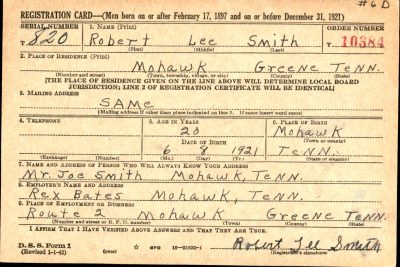 #6D
REGISTRATION CARD—(Men born on or after February 17, 1897 and on or before December 31, 1921)
SERIAL NUMBER 1. NAME (Print) ORDER NUMBER
T 820 Robert Lee Smith T 10584
(First) (Middle) (Last)
2. PLACE OF RESIDENCE (Print)
Mohawk Greene Tenn.
(Number and street) (Town, township, village, or city) (County) (State)
[THE PLACE OF RESIDENCE GIVEN ON THE LINE ABOVE WILL DETERMINE LOCAL BOARD
JURISDICTION; LINE 2 OF REGISTRATION CERTIFICATE WILL BE IDENTICAL]
3. MAILING ADDRESS
SAME
[Mailing address if other than place indicated on line 2. If same insert word same]
4. TELEPHONE 5. AGE IN YEARS 6. PLACE OF BIRTH
20 Mohawk
DATE OF BIRTH (Town or county)
6 8 1921 Tenn.
(Exchange) (Number) (Mo.) (Day) (Yr.) (State or country)
7. NAME AND ADDRESS OF PERSON WHO WILL ALWAYS KNOW YOUR ADDRESS
Mr. Joe Smith Mohawk, Tenn.
8. EMPLOYER'S NAME AND ADDRESS
Rex Bates Mohawk, Tenn.
9. PLACE OF EMPLOYMENT OR BUSINESS
Route 2 Mohawk Greene Tenn.
(Number and street or R. F. D. number) (Town) (County) (State)
I AFFIRM THAT I HAVE VERIFIED ABOVE ANSWERS AND THAT THEY ARE TRUE.
D. S. S. Form 1
(Revised 1-1-42) (over) GPO 16—21630-1 Robert Lee Smith
(Registrant's signature)